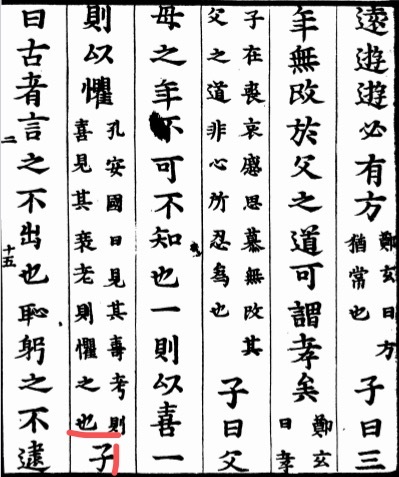 遠遊遊必有方鄭玄曰方猶常也子曰三
年無改於父之道可謂孝矣鄭玄曰孝
子在喪哀慼思慕無改其父之道非心所忍為也子曰父
母之年不可不知也一則以喜一
則以懼孔安國曰見其壽考則喜見其衰老則懼之也子
二 十五
曰古者言之不出也恥躬之不逮